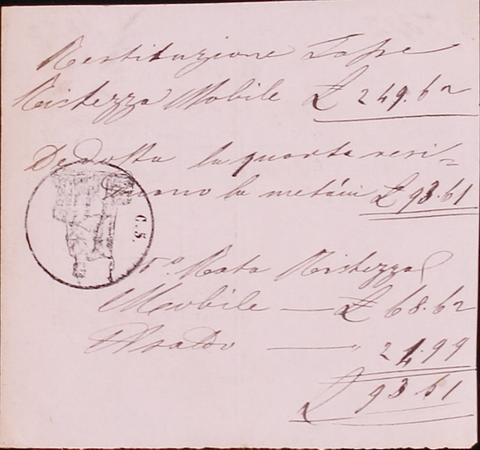 Restituzione Tasse
Richezza Mobile £ 249.62
Dedotta la quarta resi=
mano la metà in £ 93.61
C.S.
5ª Rata Richezza
Mobile — £ 68.62
Saldo — " 24.99
£ 93.61